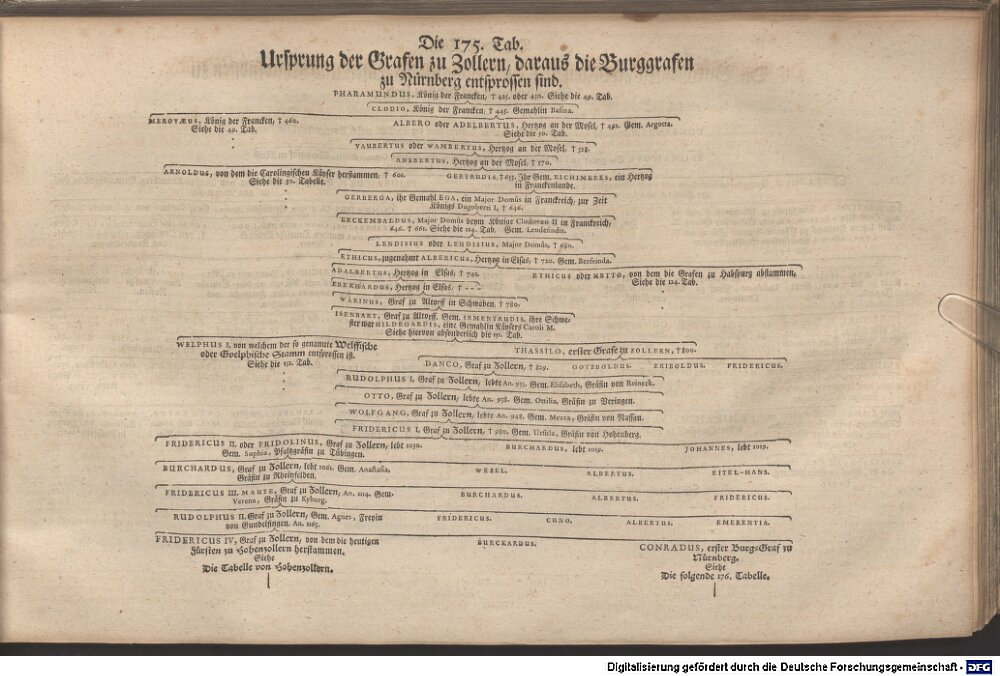 Die 175. Tab.
Ursprung der Grafen zu Zollern, daraus die Burggrafen
zu Nürnberg entsprossen sind.
PHARAMUNDUS, König der Francken, † 425. oder 430. Siehe die 49. Tab.
CLODIO, König der Francken, † 445. Gemahlin Basina.
MEROVÆUS, König der Francken, † 460.
Siehe die 49. Tab.
ALBERO oder ADELBERTUS, Hertzog an der Mosel, † 491. Gem. Argotta.
Siehe die 50. Tab.
VAUBERTUS oder WAMBERTUS, Hertzog an der Mosel, † 528.
ANSBERTUS, Hertzog an der Mosel, † 570.
ARNOLDUS, von dem die Carolingischen Käyser herstammen, † 601.
Siehe die 50. Tabelle.
GERTRUDIS, † 655. Ihr Gem. RICHIMERES, ein Hertzog
in Franckenlande.
GERBERGA, ihr Gemahl EGA, ein Major Domûs in Franckreich, zur Zeit
Königs Dagoberti I, † 646.
ERCKEMBALDUS, Major Domûs beym Könige Clodovæo II in Franckreich,
646. † 661. Siehe die 124. Tab. Gem. Leudefindis.
LENDISIUS oder LEUDISIUS, Major Domûs, † 680.
ETHICUS, zugenahmt ALBERICUS, Hertzog in Elsas, † 720. Gem. Berswinda.
ADALBERTUS, Hertzog in Elsas, † 741.
ETHICUS oder HETTO, von dem die Grafen zu Habspurg abstammen,
Siehe die 124. Tab.
EBERHARDUS, Hertzog in Elsas, † - - -
WARINUS, Graf zu Altorff in Schwaben, † 780.
ISENBART, Graf zu Altorff. Gem. IRMENTRUDIS, ihre Schwe-
ster war HILDEGARDIS, eine Gemahlin Käysers Caroli M.
Siehe hiervon absonderlich die 151. Tab.
WELPHUS I, von welchem der so genannte Welffische
oder Guelphische Stamm entsprossen ist.
Siehe die 151. Tab.
THASSILO, erster Grafe zu ZOLLERN, † 800.
DANCO, Graf zu Zollern, † 829. GOTEBOLDUS. ERIBOLDUS. FRIDERICUS.
RUDOLPHUS I, Graf zu Zollern, lebte An. 931. Gem. Elisabeth, Gräfin von Reineck.
OTTO, Graf zu Zollern, lebte An. 938. Gem. Ottilia, Gräfin zu Veringen.
WOLFGANG, Graf zu Zollern, lebte An. 948. Gem. Mezza, Gräfin von Nassau.
FRIDERICUS I, Graf zu Zollern, † 980. Gem. Ursula, Gräfin von Hohenberg.
FRIDERICUS II. oder FRIDOLINUS, Graf zu Zollern, lebt 1030.
Gem. Sophia, Pfaltzgräfin zu Tübingen.
BURCHARDUS, lebt 1019. JOHANNES, lebt 1019.
BURCHARDUS, Graf zu Zollern, lebt 1061. Gem. Anastasia,
Gräfin zu Rheinfelden.
WEBEL. ALBERTUS. EITEL-HANS.
FRIDERICUS III. MAUTE, Graf zu Zollern, An. 1114. Gem.
Verena, Gräfin zu Kyburg.
BURCHARDUS. ALBERTUS. FRIDERICUS.
RUDOLPHUS II. Graf zu Zollern, Gem. Agnes, Freyin
von Gundelfingen. An. 1165.
FRIDERICUS. CUNO. ALBERTUS. EMERENTIA.
FRIDERICUS IV, Graf zu Zollern, von dem die heutigen
Fürsten zu Hohenzollern herstammen.
Siehe
Die Tabelle von Hohenzollern.
BURCKARDUS.
CONRADUS, erster Burg-Graf zu
Nürnberg.
Siehe
Die folgende 176. Tabelle.
Digitalisierung gefördert durch die Deutsche Forschungsgemeinschaft - DFG